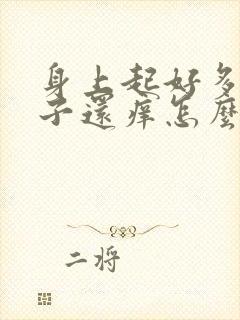 身上起好多
子還痒怎麼
二将